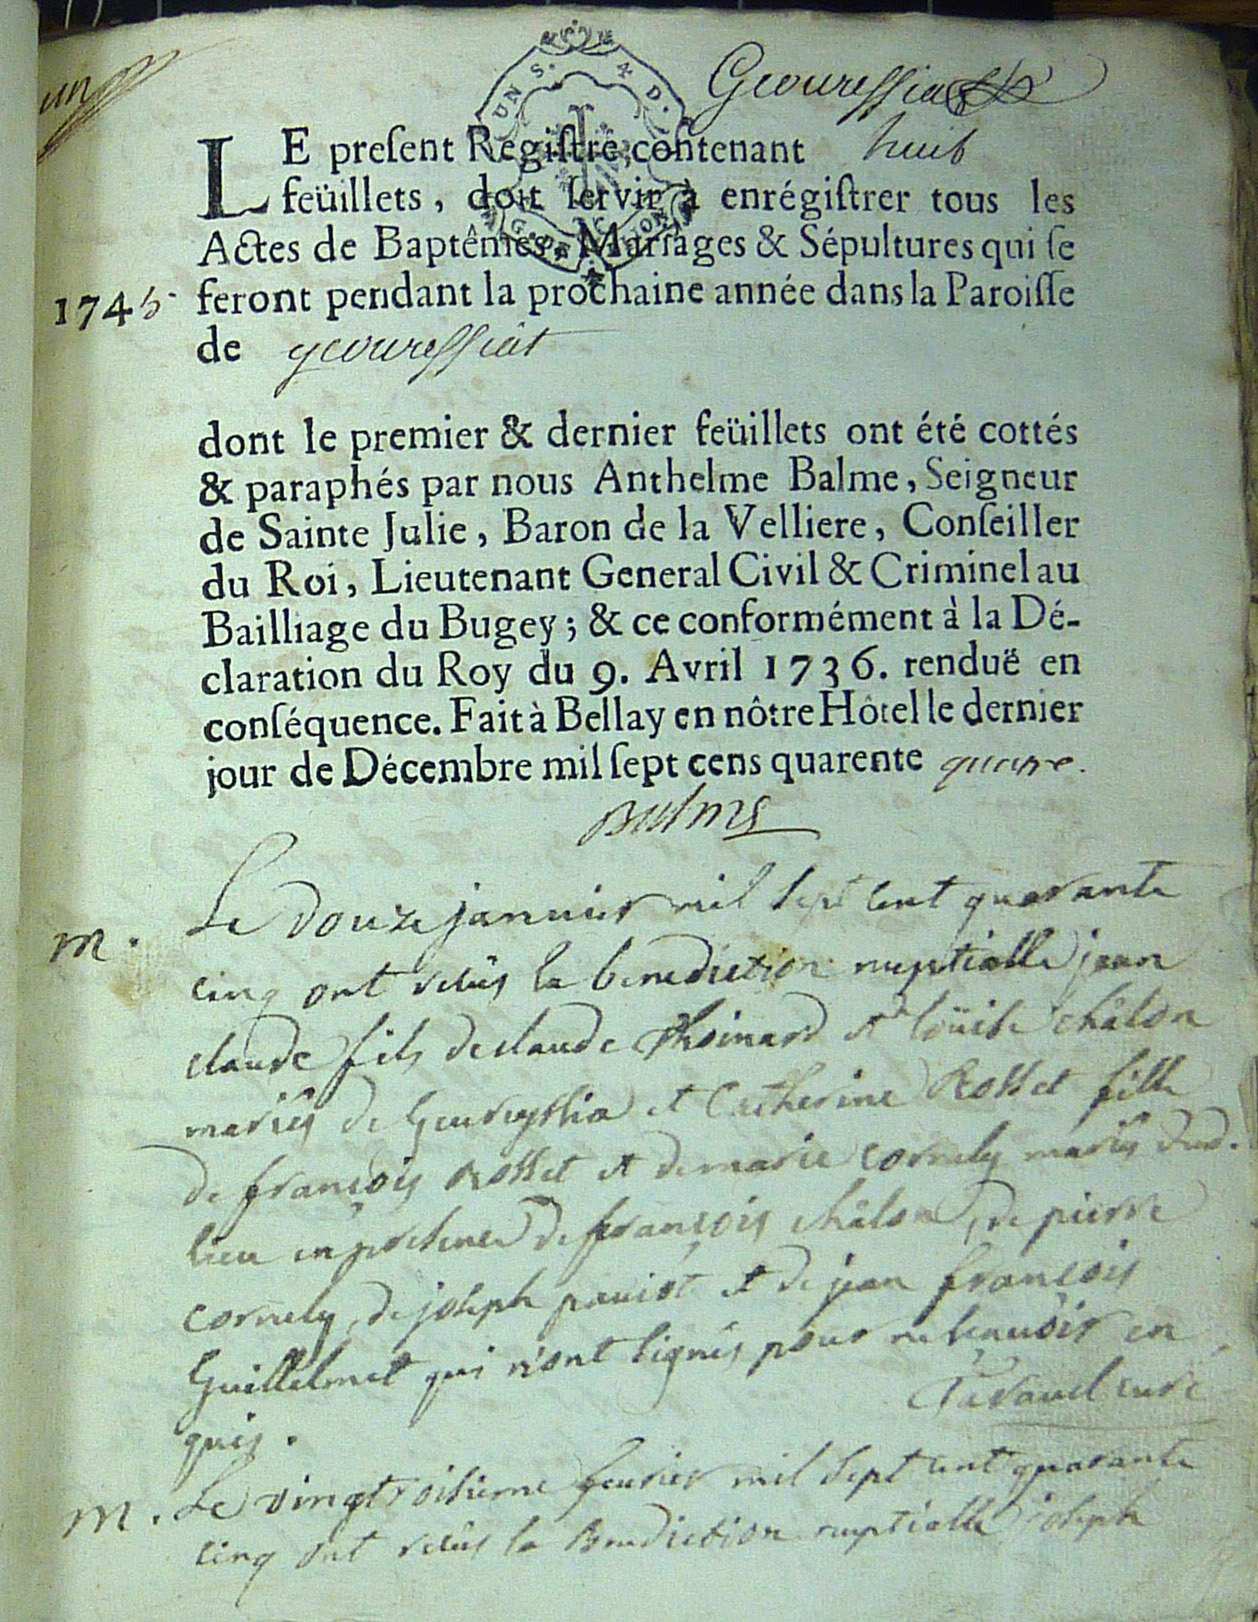 un
UNS. 4 D.
G. DE
Geouressiat
LE preſent Regiſtre, contenant huit
feüillets, doit ſervir à enrégiſtrer tous les
Actes de Baptêmes, Mariages & Sépultures qui ſe
1745. feront pendant la prochaine année dans la Paroiſſe
de geouressiat
dont le premier & dernier feüillets ont été cottés
& paraphés par nous Anthelme Balme, Seigneur
de Sainte Julie, Baron de la Velliere, Conſeiller
du Roi, Lieutenant General Civil & Criminel au
Bailliage du Bugey; & ce conformément à la Dé-
claration du Roy du 9. Avril 1736. renduë en
conſéquence. Fait à Bellay en nôtre Hôtel le dernier
jour de Décembre mil ſept cens quarente quatre.
Balme
Le douze janvier mil sept cent quarante
m. cinq ont reçûs la benediction nuptialle jean
claude fils de claude Thoinard et loüise châlon
mariés de Geureyssia et Catherine Rosset fille
de françois Rosset et de marie cornely mariés dud.
lieu en presence de françois châlon, de pierre
cornely, de joseph et de jean françois
Guillelmet qui n'ont signés pour ne sçavoir en
quis. curé
m. Le vingtroisieme fevrier mil sept cent quarante
cinq ont reçûs la Benediction nuptialle joseph